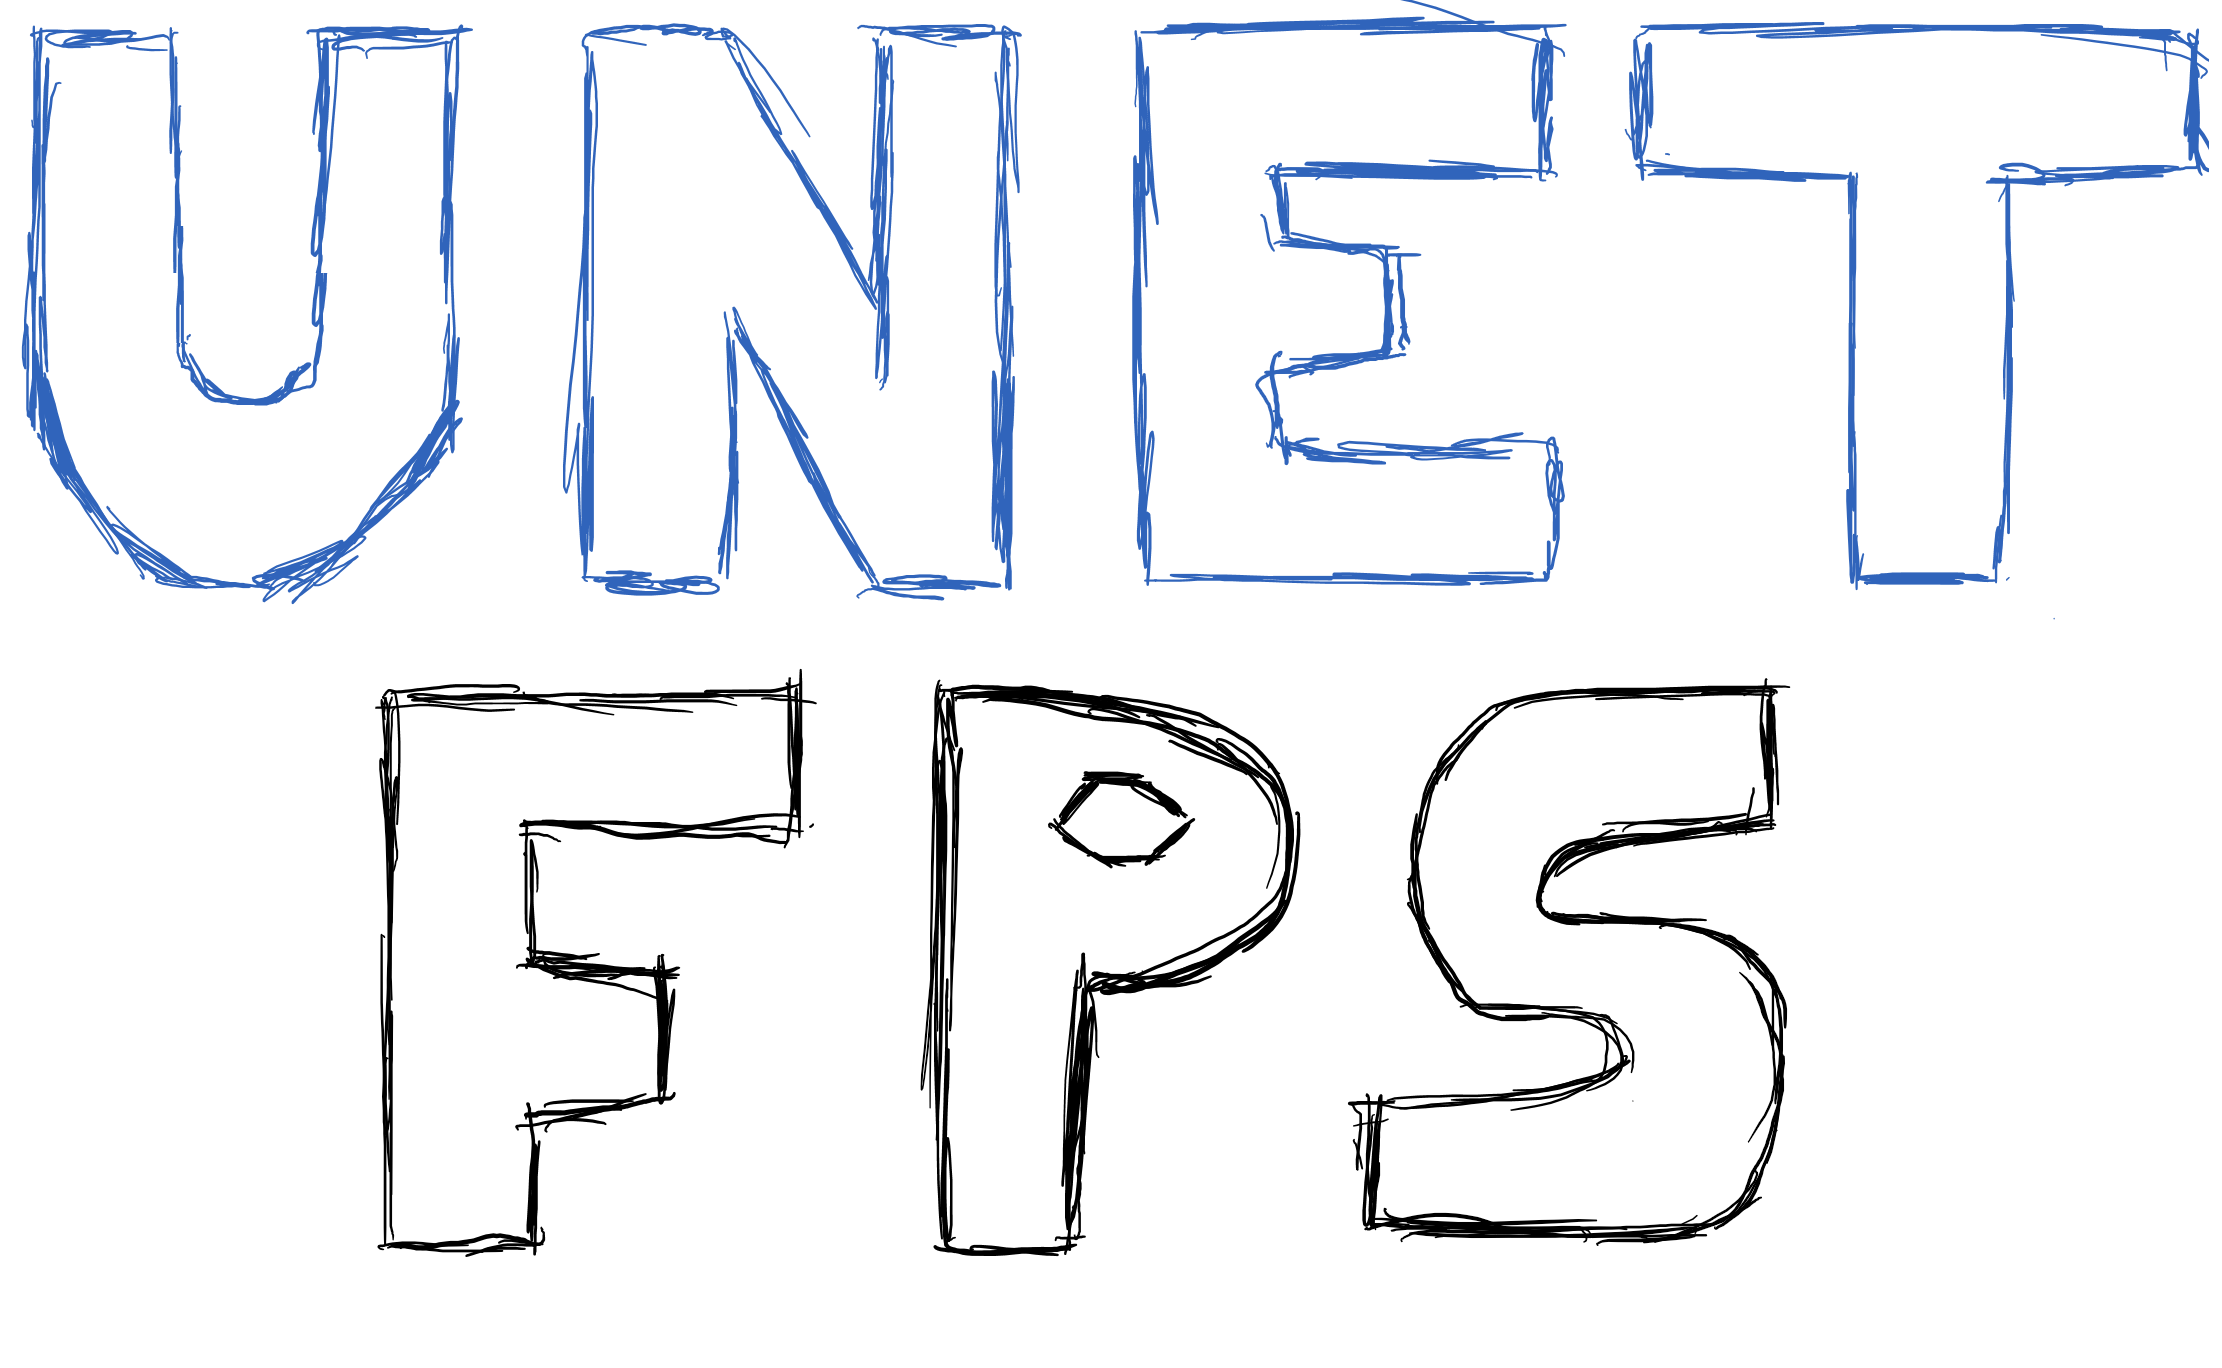 UNET
FPS